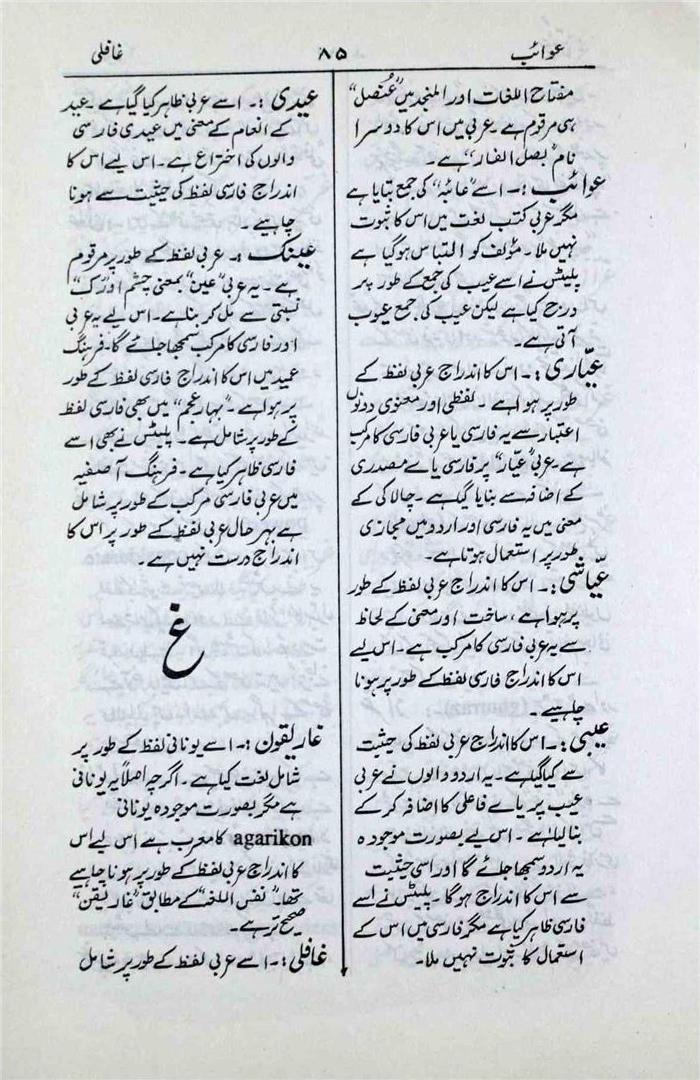 عوائب
۸۵
غافلی
مفتاح اللغات اور المنجد میں "عُنصل"
ہی مرقوم ہے۔ عربی میں اس کا دوسرا
نام "بصل الفار" ہے۔
عوائب :۔ اسے "عائبہ" کی جمع بتایا ہے
مگر عربی کتب لغت میں اس کا ثبوت
نہیں ملا۔ مؤلف کو التباس ہوگیا ہے
پلیٹس نے اسے عیب کی جمع کے طور پر
درج کیا ہے لیکن عیب کی جمع عیوب
آتی ہے۔
عیّاری :۔ اس کا اندراج عربی لفظ کے
طور پر ہوا ہے۔ لفظی اور معنوی دونوں
اعتبار سے یہ فارسی یا عربی فارسی کا مرکب
ہے۔ عربی "عیّار" پر فارسی یاے مصدری
کے اضافہ سے بنایا گیا ہے۔ چالاکی کے
معنی میں یہ فارسی اور اردو میں مجازی
طور پر استعمال ہوتا ہے۔
عیّاشی :۔ اس کا اندراج عربی لفظ کے طور
پر ہوا ہے، ساخت اور معنی کے لحاظ
سے یہ عربی فارسی کا مرکب ہے۔ اس لیے
اس کا اندراج فارسی لفظ کے طور پر ہونا
چاہیے۔
عیبی :۔ اس کا اندراج عربی لفظ کی حیثیت
سے کیا گیا ہے۔ یہ اردو والوں نے عربی
عیب پر یاے فاعلی کا اضافہ کر کے
بنا لیا ہے۔ اس لیے بصورت موجودہ
یہ اردو سمجھا جائے گا اور اسی حیثیت
سے اس کا اندراج ہوگا۔ پلیٹس نے اسے
فارسی ظاہر کیا ہے مگر فارسی میں اس کے
استعمال کا ثبوت نہیں ملا۔
عیدی :۔ اسے عربی ظاہر کیا گیا ہے۔ عید
کے انعام کے معنی میں عیدی فارسی
والوں کی اختراع ہے۔ اس لیے اس کا
اندراج فارسی لفظ کی حیثیت سے ہونا
چاہیے۔
عینک :۔ عربی لفظ کے طور پر مرقوم
ہے۔ یہ عربی "عین" بمعنی چشم اور "ک"
نسبتی سے مل کر بنا ہے۔ اس لیے یہ عربی
اور فارسی کا مرکب سمجھا جائے گا۔ فرہنگ
عمید میں اس کا اندراج فارسی لفظ کے طور
پر ہوا ہے۔ "بہار عجم" میں بھی فارسی لفظ
کے طور پر شامل ہے۔ پلیٹس نے بھی اسے
فارسی ظاہر کیا ہے۔ فرہنگ آصفیہ
میں عربی فارسی مرکب کے طور پر شامل
ہے بہر حال عربی لفظ کے طور پر اس کا
اندراج درست نہیں ہے۔
غ
غاریقون :۔ اسے یونانی لفظ کے طور پر
شامل لغت کیا ہے۔ اگرچہ اصلاً یہ یونانی
ہے مگر بصورت موجودہ یونانی
agarikon کا معرب ہے اس لیے اس
کا اندراج عربی لفظ کے طور پر ہونا چاہیے
تھا۔ "نفس اللغہ" کے مطابق "غاریقن"
صحیح تر ہے۔
غافلی :۔ اسے عربی لفظ کے طور پر شامل